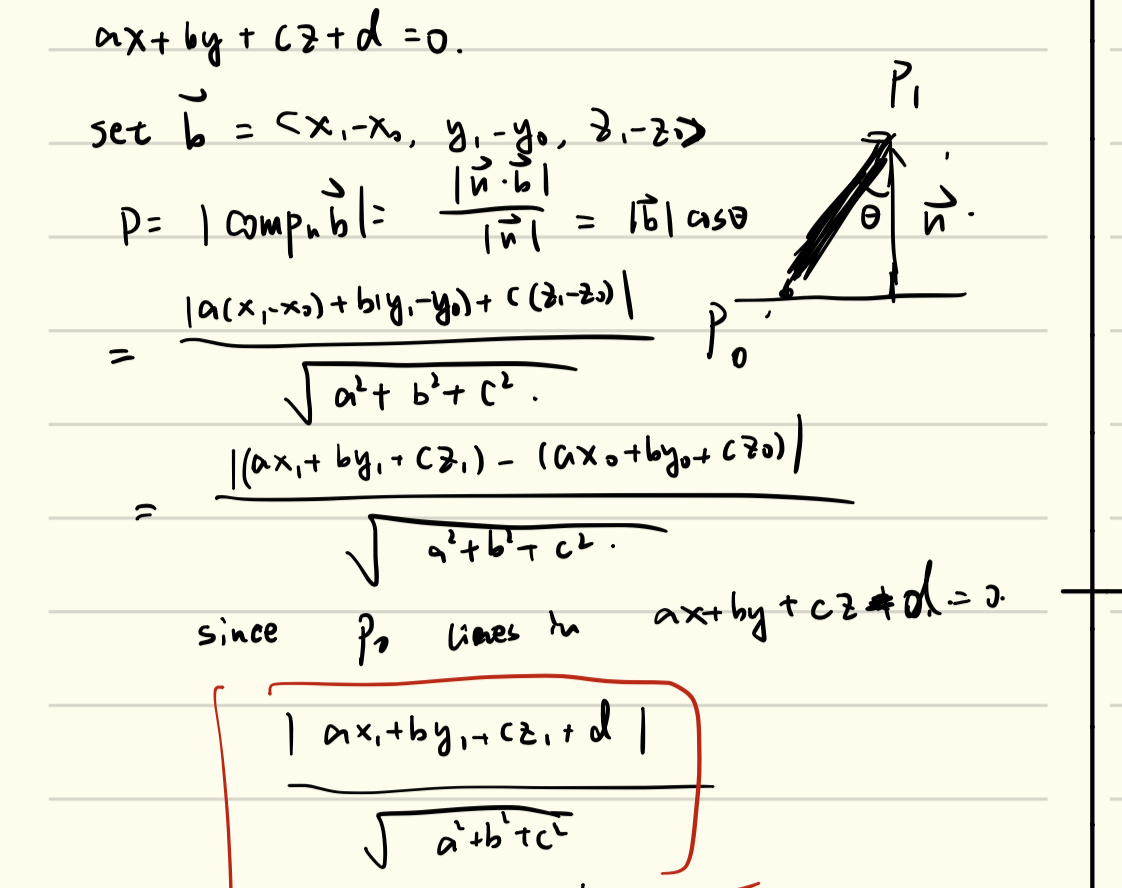 ax + by + cz + d = 0.
set b⃗ = <x₁-x₀, y₁-y₀, z₁-z₀>
P₁
P = |compₙ b⃗| = |n⃗·b⃗| / |n⃗| = |b⃗| cosθ
θ n⃗.
= |a(x₁-x₀) + b(y₁-y₀) + c(z₁-z₀)| / √(a² + b² + c².)
P₀
= |(ax₁ + by₁ + cz₁) - (ax₀ + by₀ + cz₀)| / √(a² + b² + c².)
since P₀ in ax + by + cz + d = 0.
| ax₁ + by₁ + cz₁ + d | / √(a² + b² + c²)